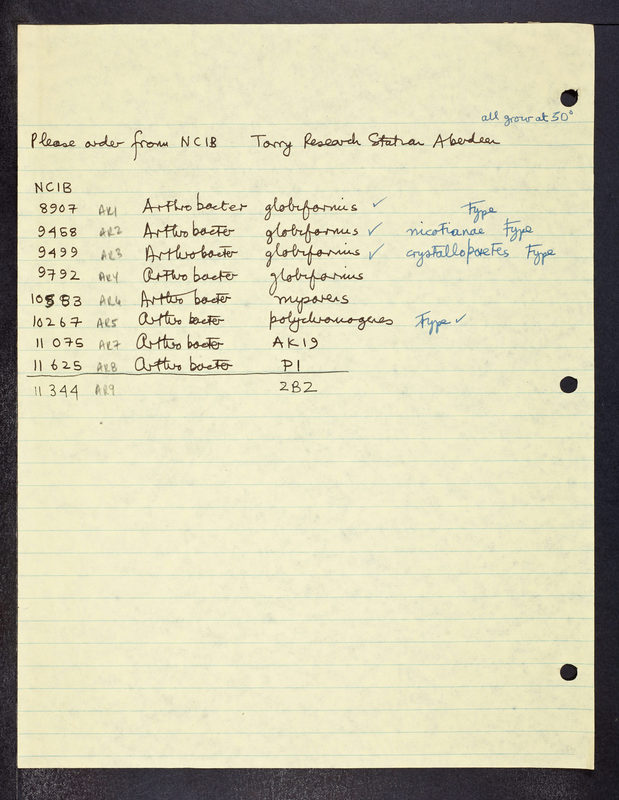 all grow at 30°
Please order from NCIB Torry Research Station Aberdeen
NCIB
8907 AR1 Arthrobacter globiformis ✓ Type
9458 AR2 Arthrobacter globiformis ✓ nicotianae Type
9499 AR3 Arthrobacter globiformis ✓ crystallopoietes Type
9792 AR4 Arthrobacter globiformis
10583 AR6 Arthrobacter mysorens
10267 AR5 Arthrobacter polychromogenes Type ✓
11075 AR7 Arthrobacter AK19
11625 AR8 Arthrobacter P1
11344 AR9 2B2